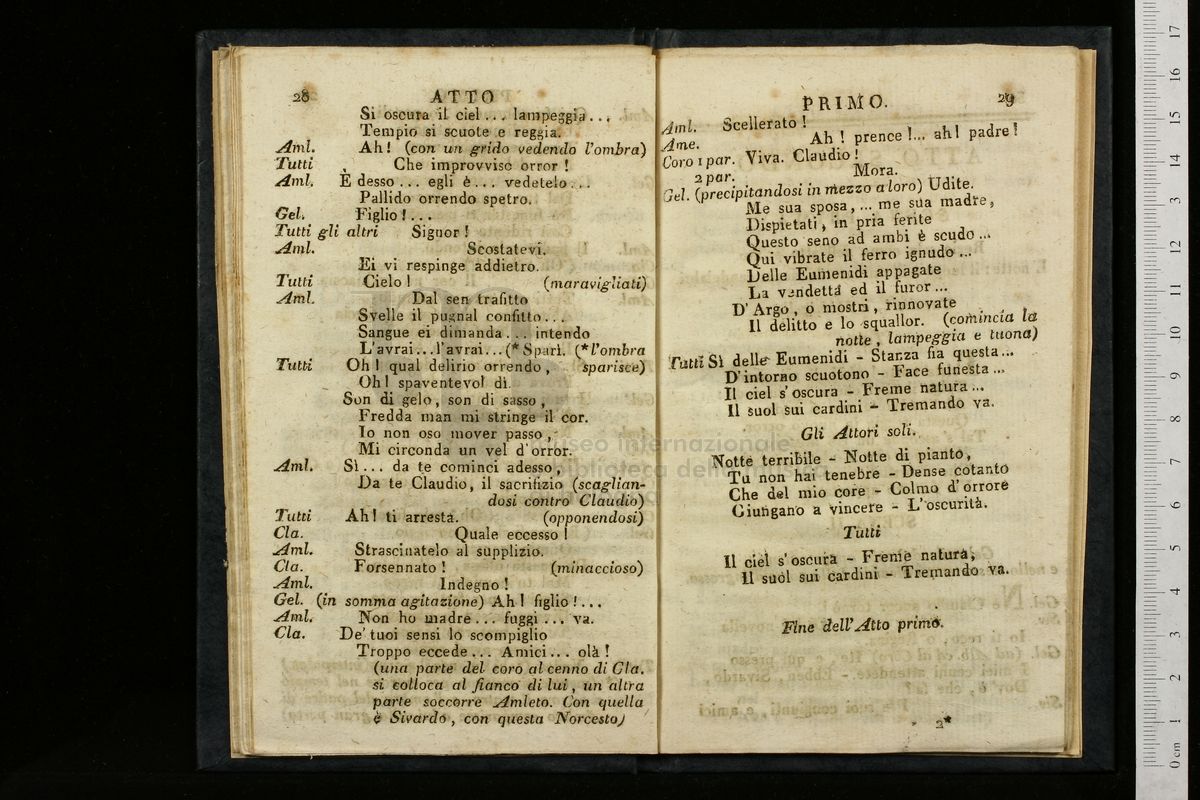 28 ATTO
Si oscura il ciel ... lampeggia ...
Tempio si scuote e reggia.
Aml. Ah! (con un grido vedendo l'ombra)
Tutti Che improvviso orror!
Aml. È desso ... egli è ... vedetelo ...
Pallido orrendo spetro.
Gel. Figlio! ...
Tutti gli altri Signor!
Aml. Scostatevi.
Ei vi respinge addietro.
Tutti Cielo! (maravigliati)
Aml. Dal sen trafitto
Svelle il pugnal confitto ...
Sangue ei dimanda ... intendo
L'avrai ... l'avrai ... (* Sparì. (* l'ombra
Tutti Oh! qual delirio orrendo, sparisce)
Oh! spaventevol dì.
Son di gelo, son di sasso,
Fredda man mi stringe il cor.
Io non oso mover passo,
Mi circonda un vel d'orror.
Aml. Sì ... da te cominci adesso,
Da te Claudio, il sacrifizio (scaglian-
dosi contro Claudio)
Tutti Ah! ti arresta. (opponendosi)
Cla. Quale eccesso!
Aml. Strascinatelo al supplizio.
Cla. Forsennato! (minaccioso)
Aml. Indegno!
Gel. (in somma agitazione) Ah! figlio! ...
Aml. Non ho madre ... fuggi ... va.
Cla. De' tuoi sensi lo scompiglio
Troppo eccede ... Amici ... olà!
(una parte del coro al cenno di Cla.
si colloca al fianco di lui, un altra
parte soccorre Amleto. Con quella
è Sivardo, con questa Norcesto)
PRIMO. 29
Aml. Scellerato!
Ame. Ah! prence! ... ah! padre!
Coro 1 par. Viva. Claudio!
2 par. Mora.
Gel. (precipitandosi in mezzo a loro) Udite.
Me sua sposa, ... me sua madre,
Dispietati, in pria ferite
Questo seno ad ambi è scudo ...
Qui vibrate il ferro ignudo ...
Delle Eumenidi appagate
La vendetta ed il furor ...
D'Argo, o mostri, rinnovate
Il delitto e lo squallor. (comincia la
notte, lampeggia e tuona)
Tutti Sì delle Eumenidi - Stanza fia questa ...
D'intorno scuotono - Face funesta ...
Il ciel s'oscura - Freme natura ...
Il suol sui cardini - Tremando va.
Gli Attori soli.
Notte terribile - Notte di pianto,
Tu non hai tenebre - Dense cotanto
Che del mio core - Colmo d'orrore
Giungano a vincere - L'oscurità.
Tutti
Il ciel s'oscura - Freme natura;
Il suol sui cardini - Tremando va.
Fine dell'Atto primo.
2*
museo internazionale
biblioteca della musica
0 cm 1 2 3 4 5 6 7 8 9 10 11 12 13 14 15 16 17